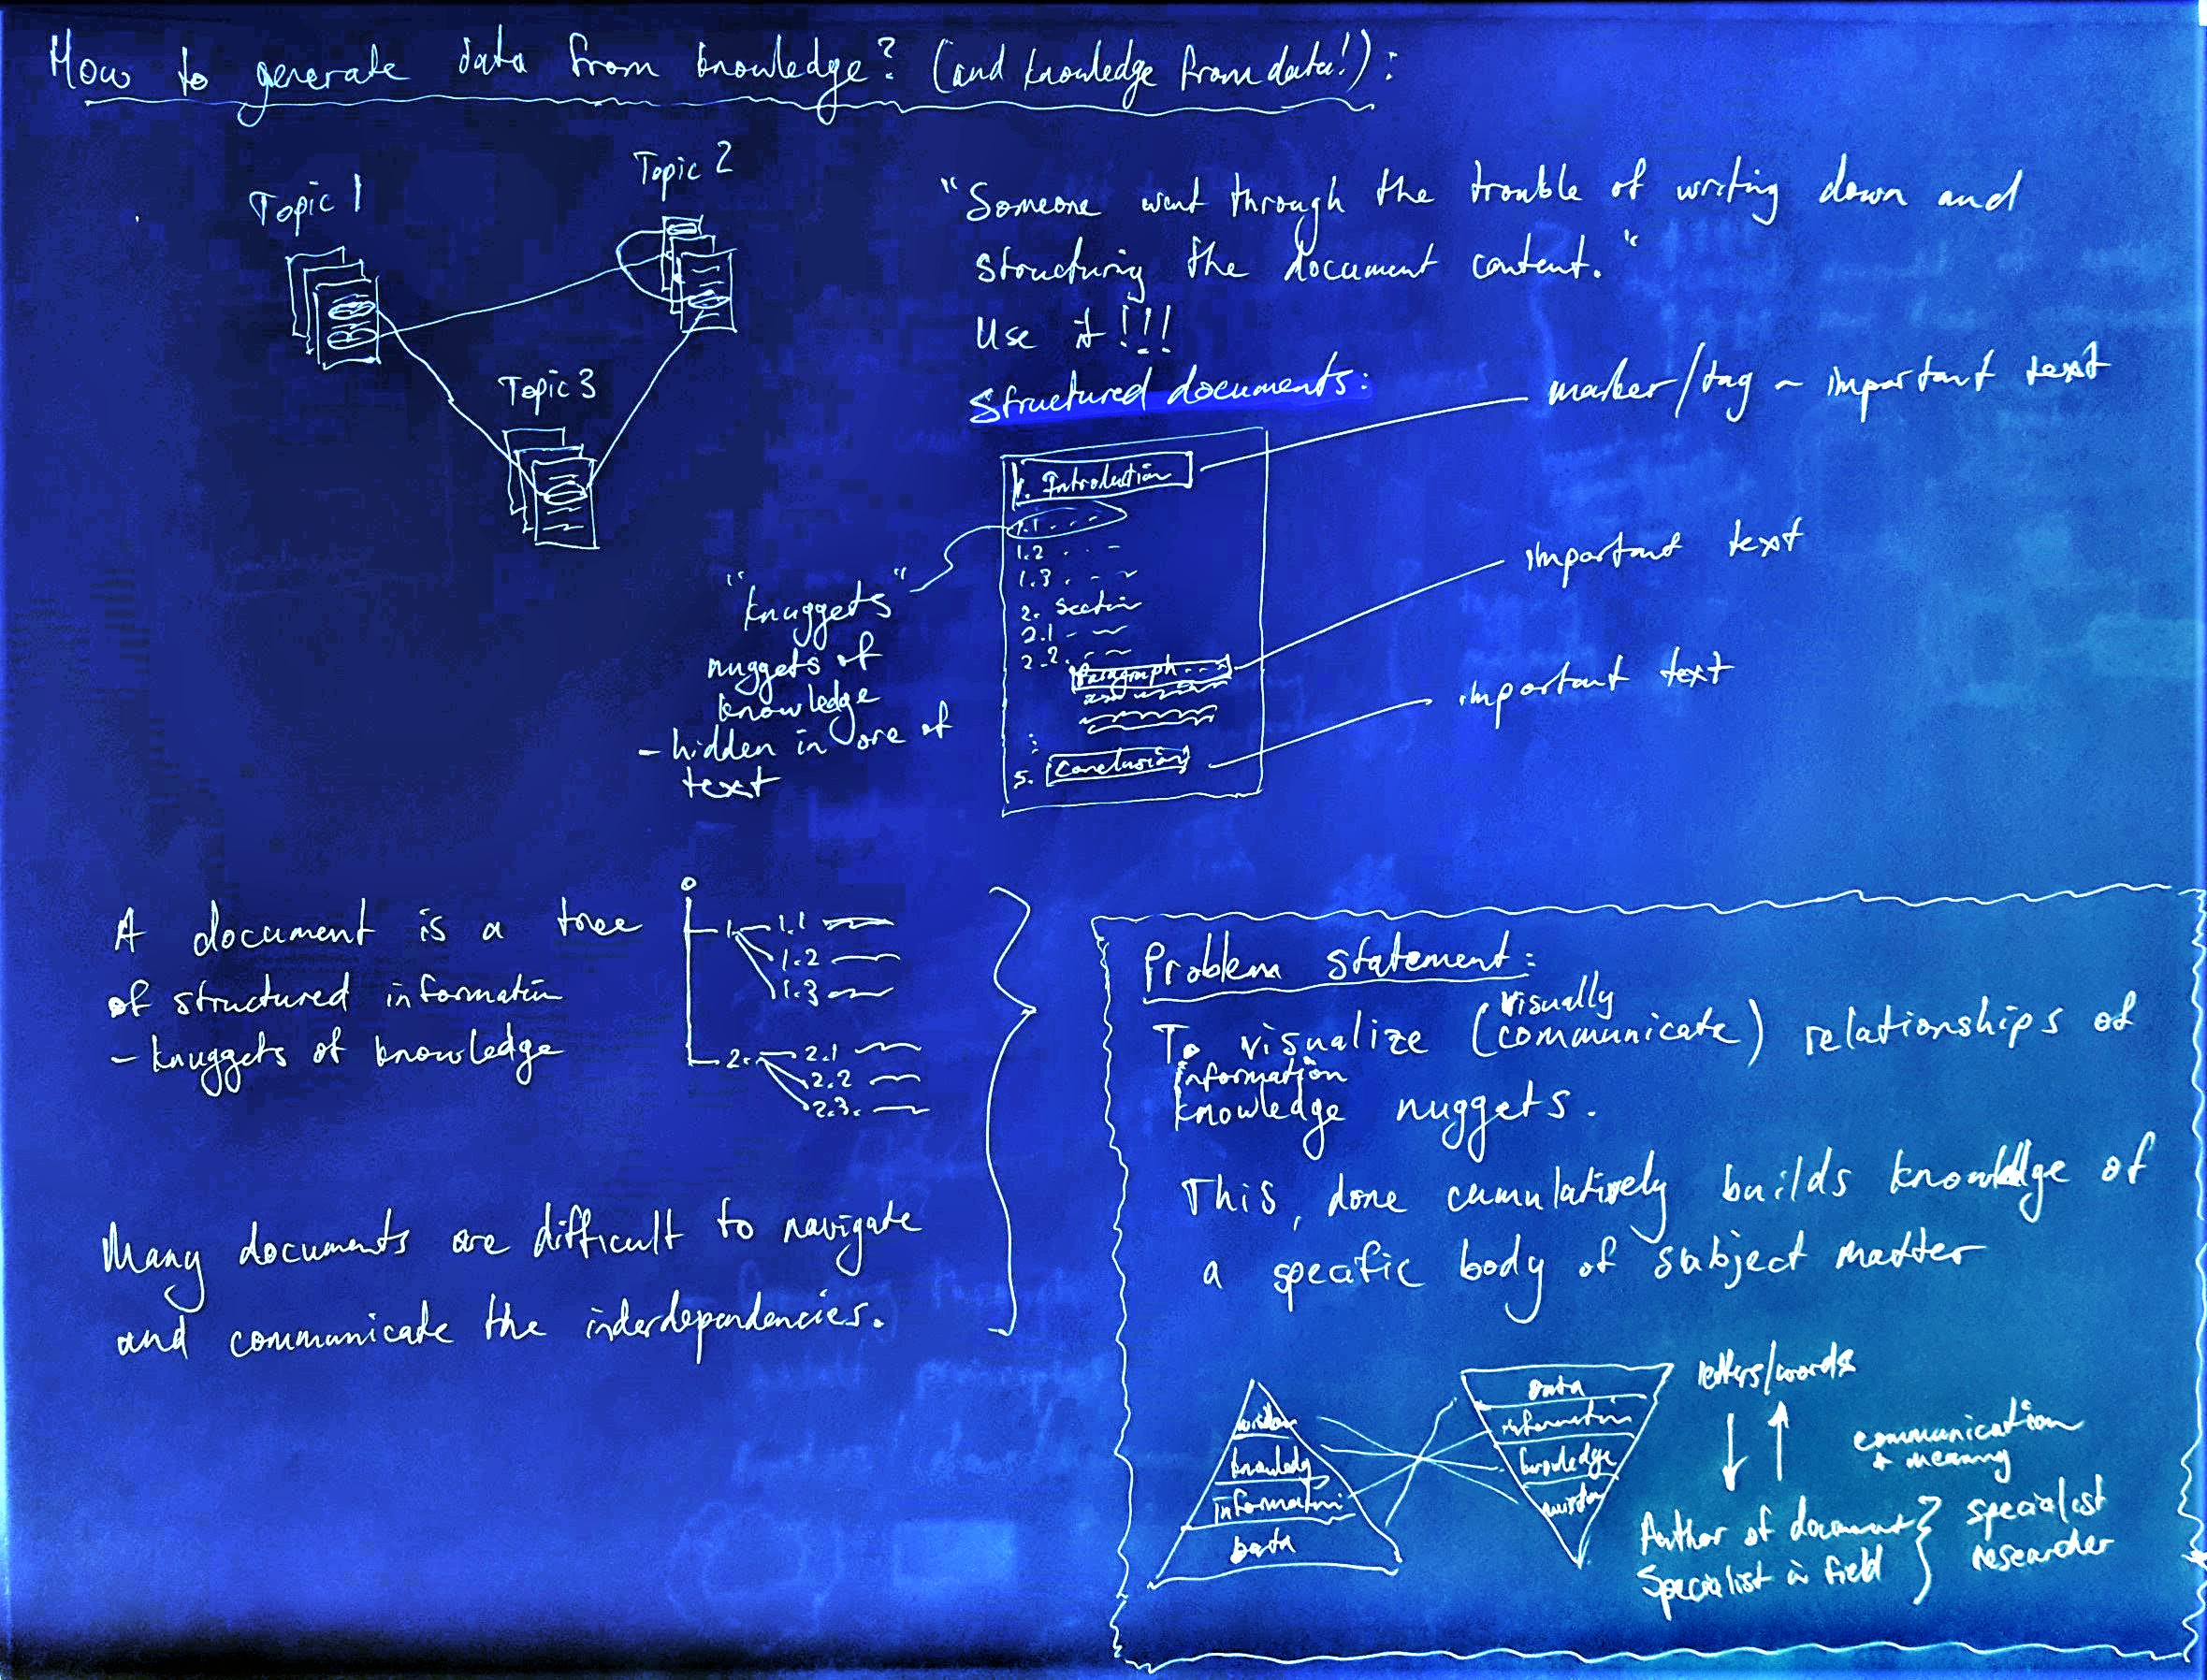 How to generate data from knowledge? (and knowledge from data!):
Topic 1
Topic 2
Topic 3
"Someone went through the trouble of writing down and
structuring the document content."
Use it!!!
Structured documents:
marker/tag ~ important text
1. Introduction
1.1
1.2
1.3
2. Section
2.1
2.2.
Paragraph
5. Conclusion
important text
important text
"knuggets"
nuggets of
knowledge
- hidden in ore of
text
A document is a tree
of structured information
- knuggets of knowledge
1.
1.1
1.2
1.3
2.
2.1
2.2
2.3.
Many documents are difficult to navigate
and communicate the interdependencies.
Problem statement:
visually
To visualize (communicate) relationships of
information
knowledge nuggets.
This, done cumulatively builds knowledge of
a specific body of subject matter
wisdom
knowledg
information
data
data
information
knowledge
wisdom
letters/words
communication
+ meaning
Author of document
Specialist in field
specialist
researcher